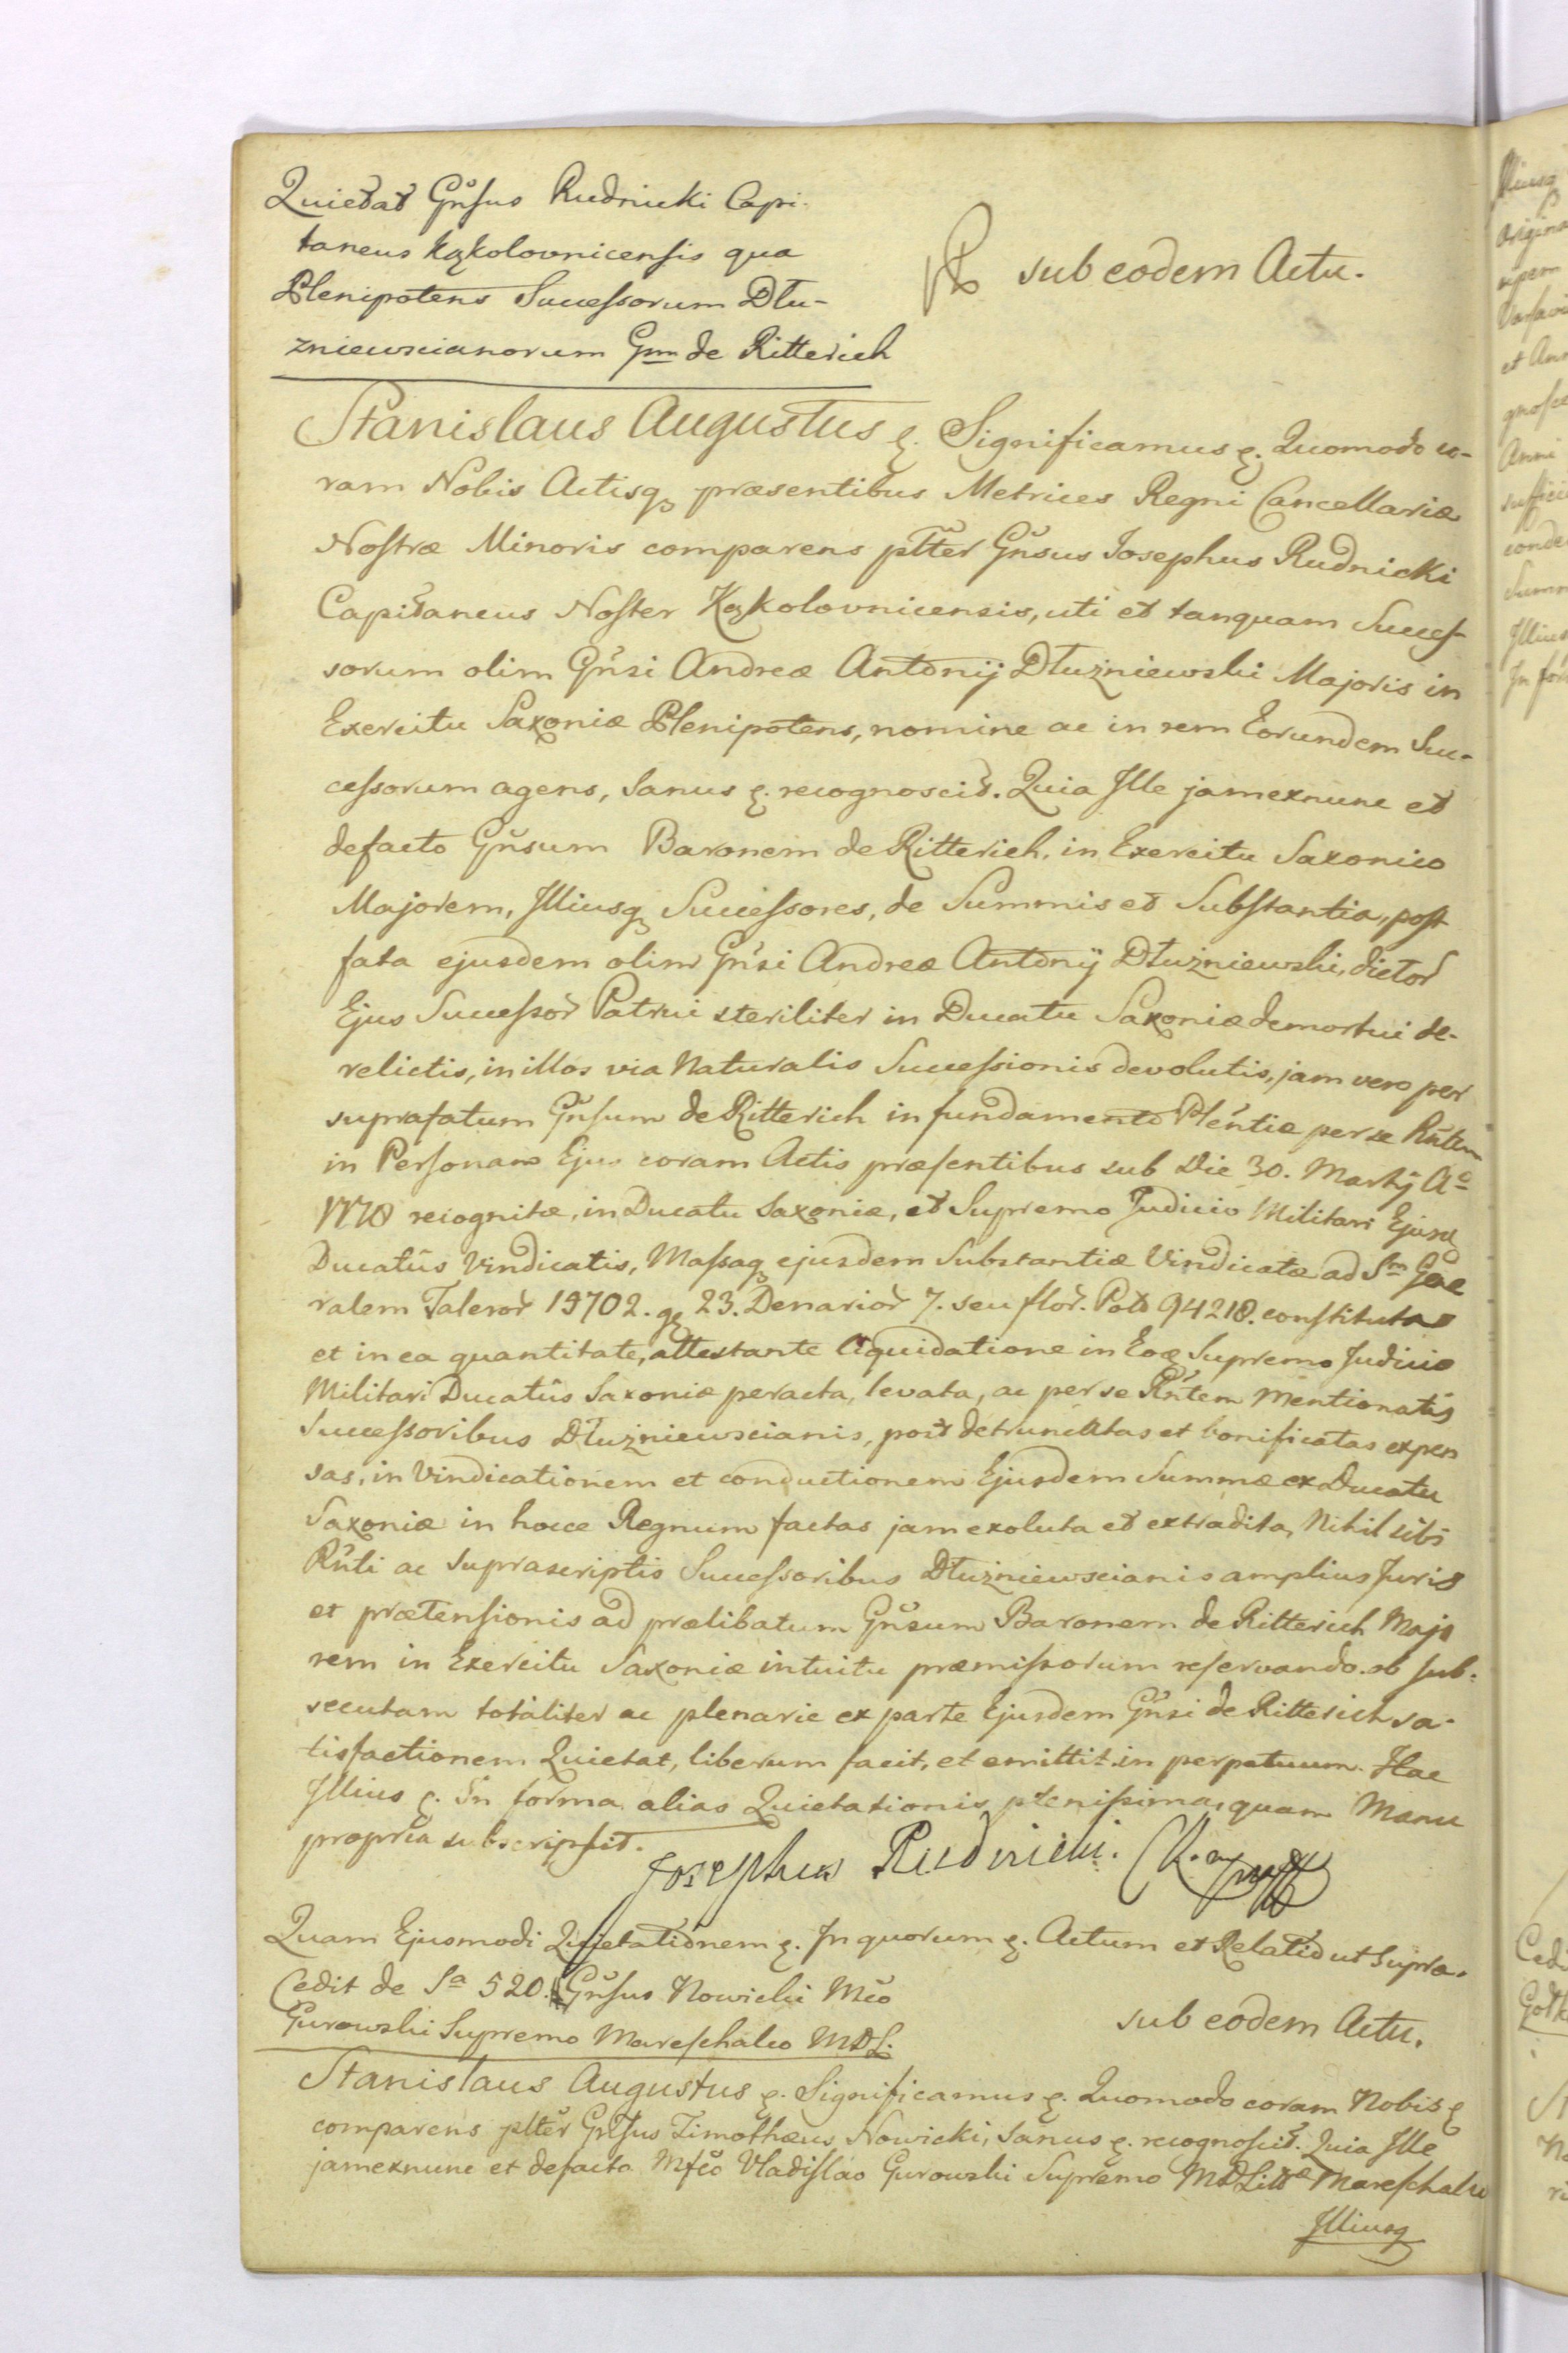 Quietat Gnsus Rudnicki Capi-
taneus Kąkolovnicensis qua
Plenipotens Successorum Dłu-
zniewscianorum Gnm de Ritterich
sub eodem Actu.
Stanislaus Augustus &. Significamus &. Quomodo co-
ram Nobis Actisq praesentibus Metrices Regni Cancellariæ
Nostræ Minoris comparens pltter Gnsus Josephus Rudnicki
Capitaneus Noster Kąkolovnicensis, uti et tanquam Succes-
sorum olim Gnsi Andreæ Antonij Dłużniewski Majoris in
Exercitu Saxoniæ Plenipotens, nomine ac in rem Eorundem Suc-
cessorum agens, Sanus &. recognoscit. Quia Ille jamexnunc et
defacto Gnsum Baronem de Ritterich, in Exercitu Saxonico
Majorem, Illiusq Successores, de Summis et Substantia, post
fata ejusdem olim Gnsi Andreæ Antonij Dłużniewski, dictor
Ejus Successor Patrui steriliter in Ducatu Saxoniæ demortui de-
relictis, in illos via Naturalis Successionis devolutis, jam vero per
suprafatum Gnsum de Ritterich in fundamento Plentiæ per se Rntem
in Personam Ejus coram Actis præsentibus sub Die 30. Martij Ao
1778 recognitæ, in Ducatu Saxoniæ, et Supremo Judicio Militari Ejusd
Ducatûs Vindicatis, Massaq ejusdem Substantiæ Vindicatæ ad Sm Gne
ralem Taleror 15702. g 23. Denarior 7. seu flor. Pol 94218. constituta
et in ea quantitate, attestante Liquidatione in Eod Supremo Judicio
Militari Ducatûs Saxoniæ peracta, levata, ac per se Rntem Mentionatis
Successoribus Dłużniewscianis, post detruncatas et bonificatas expen
sas, in Vindicationem et conductionem Ejusdem Summæ ex Ducatu
Saxoniæ in hocce Regnum factas jam exoluta et extradita, Nihil sibi
Rnti ac Suprascriptis Successoribus Dłużniewscianis amplius Juris
et prætensionis ad prælibatum Gnsum Baronem de Ritterich Majo
rem in Exercitu Saxoniæ intuitu præmissorum reservando. ob sub-
secutam totaliter ac plenarie ex parte Ejusdem Gnsi de Ritterich sa-
tisfactionem Quietat, liberum facit, et emittit in perpetuum. Hac
Illius &. In forma alias Quietationis plenissima, quam Manu
propria subscripsit.
Josephus Rudnicki.
Quam Ejusmodi Quietationem &. In quorum &. Actum et Relatio ut supra.
Cedit de Sa 520. Gnsus Nowicki Mco
Gurowski Supremo Mareschalco MDL.
sub eodem Actu.
Stanislaus Augustus &. Significamus &. Quomodo coram Nobis &
comparens pltter Gnsus Timothæus Nowicki, Sanus &. recognoscit. Quia Ille
jamexnunc et defacto Mfco Vladislao Gurowski Supremo MDLitt Mareschalco
Illiusq